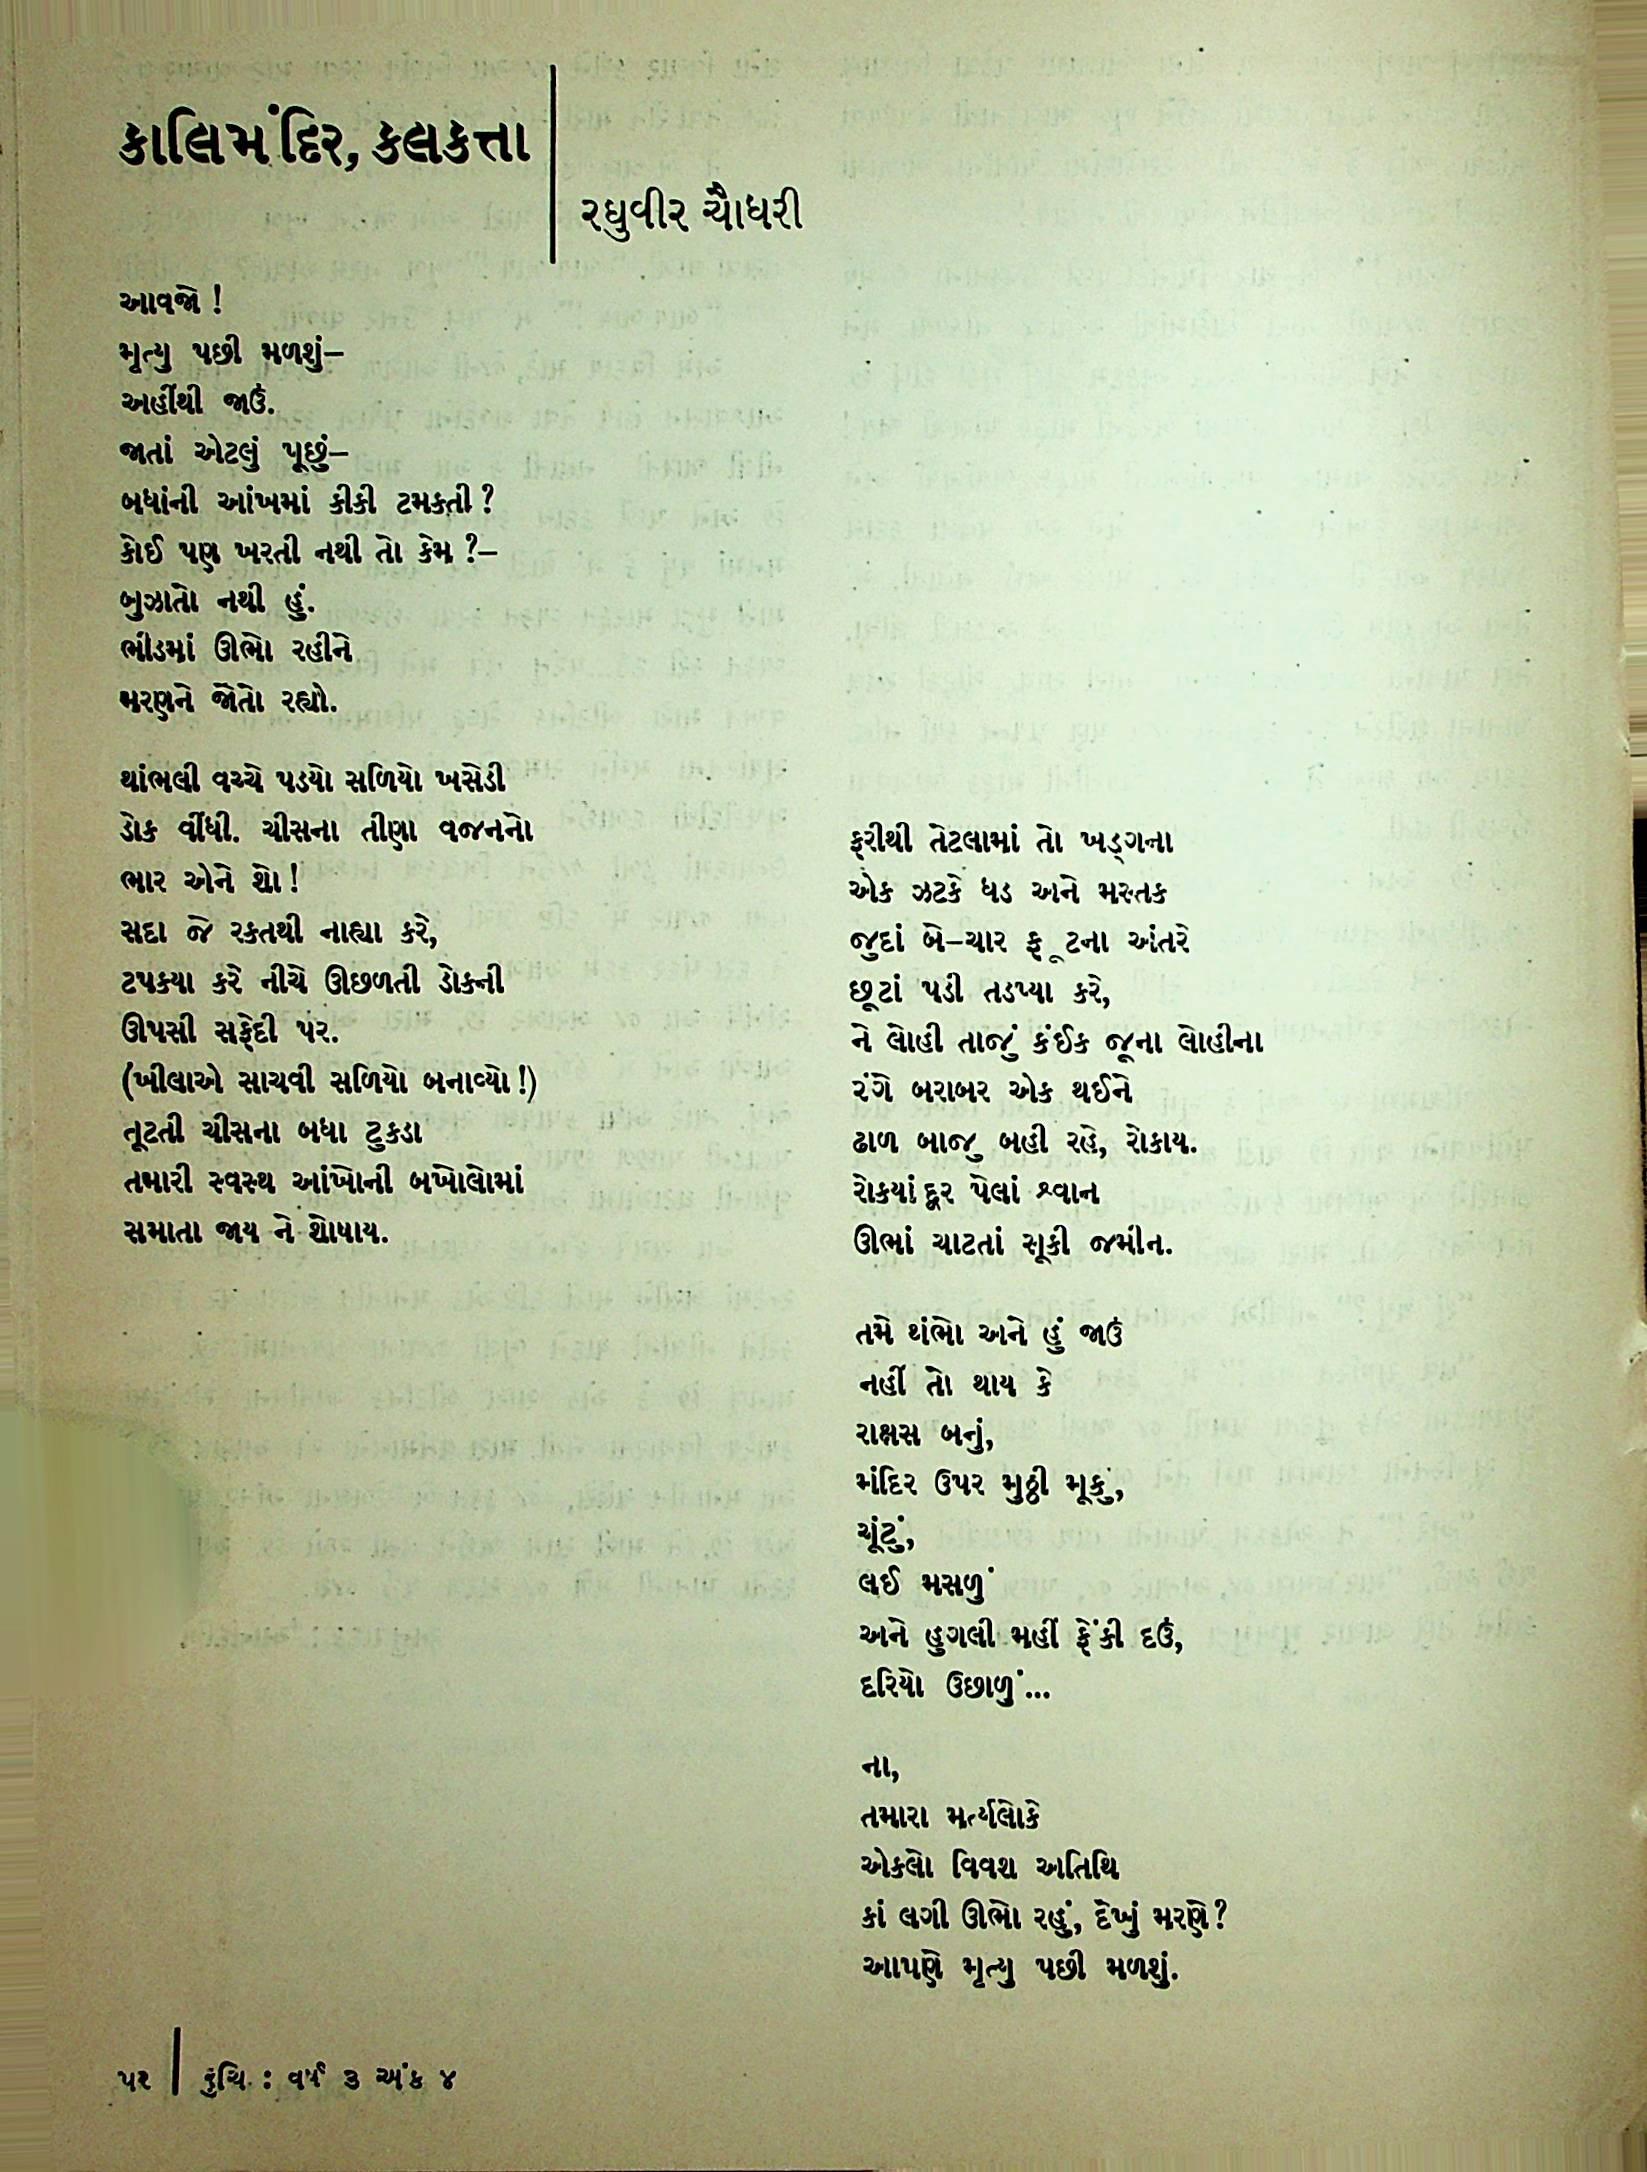 કાલિમંદિર, કલકત્તા
રઘુવીર ચૌધરી
આવજો !
મૃત્યુ પછી મળશું–
અહીંથી જાઉં.
જાતાં એટલું પૂછું–
બધાંની આંખમાં કીકી ટમકતી ?
કોઈ પણ ખરતી નથી તો કેમ ?–
બુઝાતો નથી હું.
ભીડમાં ઊભો રહીને
મરણને જોતો રહ્યો.
થાંભલી વચ્ચે પડયો સળિયો ખસેડી
ડોક વીંધી. ચીસના તીણા વજનનો
ભાર એને શો !
સદા જે રક્તથી નાહ્યા કરે,
ટપક્યા કરે નીચે ઊછળતી ડોકની
ઊપસી સફેદી પર.
(ખીલાએ સાચવી સળિયો બનાવ્યો !)
તૂટતી ચીસના બધા ટુકડા
તમારી સ્વસ્થ આંખોની બખોલોમાં
સમાતા જાય ને શોષાય.
ફરીથી તેટલામાં તો ખડ્ગના
એક ઝટકે ધડ અને મસ્તક
જુદાં બે–ચાર ફૂટના અંતરે
છૂટાં પડી તડપ્યા કરે,
ને લોહી તાજું કંઈક જૂના લોહીના
રંગે બરાબર એક થઈને
ઢાળ બાજુ બહી રહે, રોકાય.
રોકયાં દૂર પેલાં શ્વાન
ઊભાં ચાટતાં સૂકી જમીન.
તમે થંભો અને હું જાઉં
નહીં તો થાય કે
રાક્ષસ બનું,
મંદિર ઉપર મુઠ્ઠી મૂકું,
ચૂંટું,
લઈ મસળું
અને હુગલી મહીં ફેંકી દઉં,
દરિયો ઉછાળું...
ના,
તમારા મર્ત્યલોકે
એકલો વિવશ અતિથિ
કાં લગી ઊભો રહું, દેખું મરણે ?
આપણે મૃત્યુ પછી મળશું.
૫૨ | રુચિ : વર્ષ ૩ અંક ૪